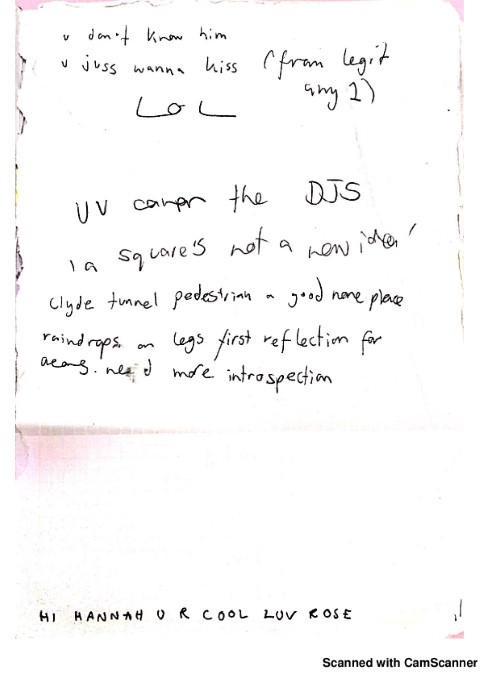 u don't know him
u juss wanna kiss (from legit
any 1)
LOL
UV the DJS
'a square's not a new idea'
Clyde tunnel pedestrian a good place
raindrops on legs first reflection for
need more introspection
HI HANNAH U R COOL LUV ROSE
Scanned with CamScanner